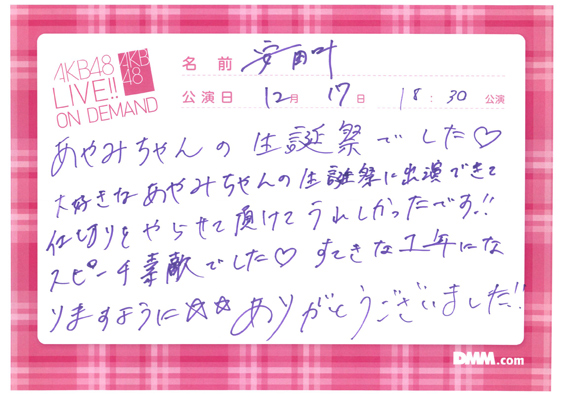 AKB48
LIVE!!
ON DEMAND
AKB
48
名前 安田叶
公演日 12月 17日 18:30 公演
あやみちゃんの生誕祭でした♡
大好きなあやみちゃんの生誕祭に出演できて
仕切りをやらせて頂けてうれしかったです!!
スピーチ素敵でした♡ すてきな1年にな
りますように☆☆ ありがとうございました!!
DMM.com